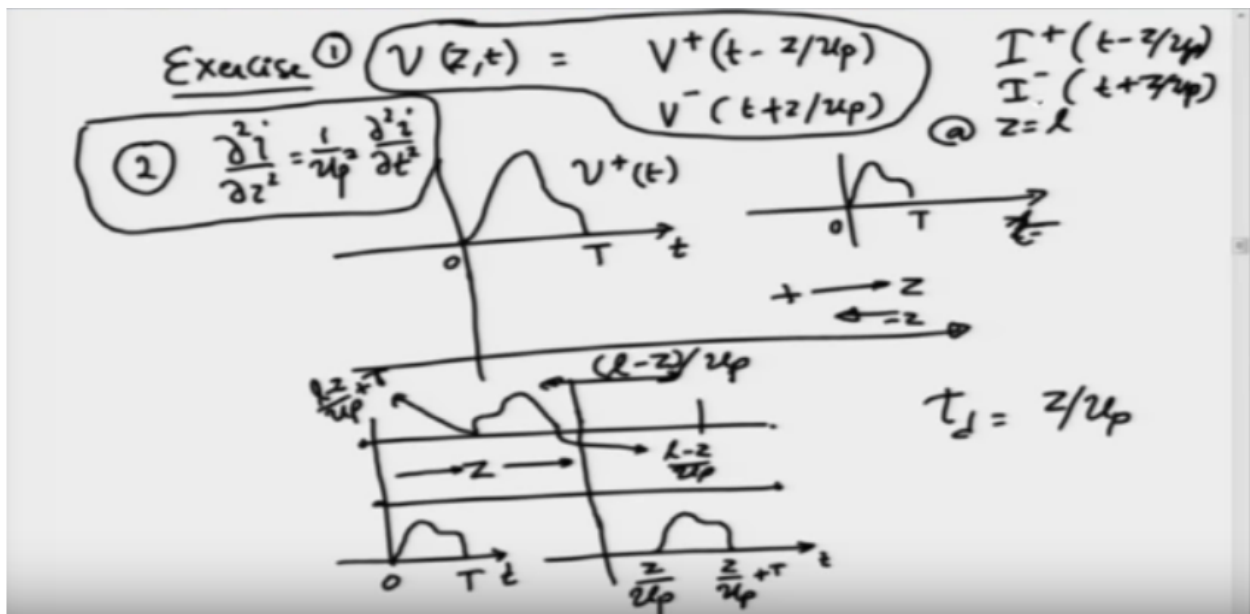 Exercise ① v(z,t) = V⁺(t - z/up)
V⁻(t+z/up)
I⁺(t-z/up)
I⁻(t+z/up)
@ z=l
② ∂²i/∂z² = 1/up² ∂²i/∂t²
v⁺(t)
0 T t
0 T
+ → z
← -z
(l-z)/up
+T
z
l-z/up
τd = z/up
0 T t
z/up z/up +T t